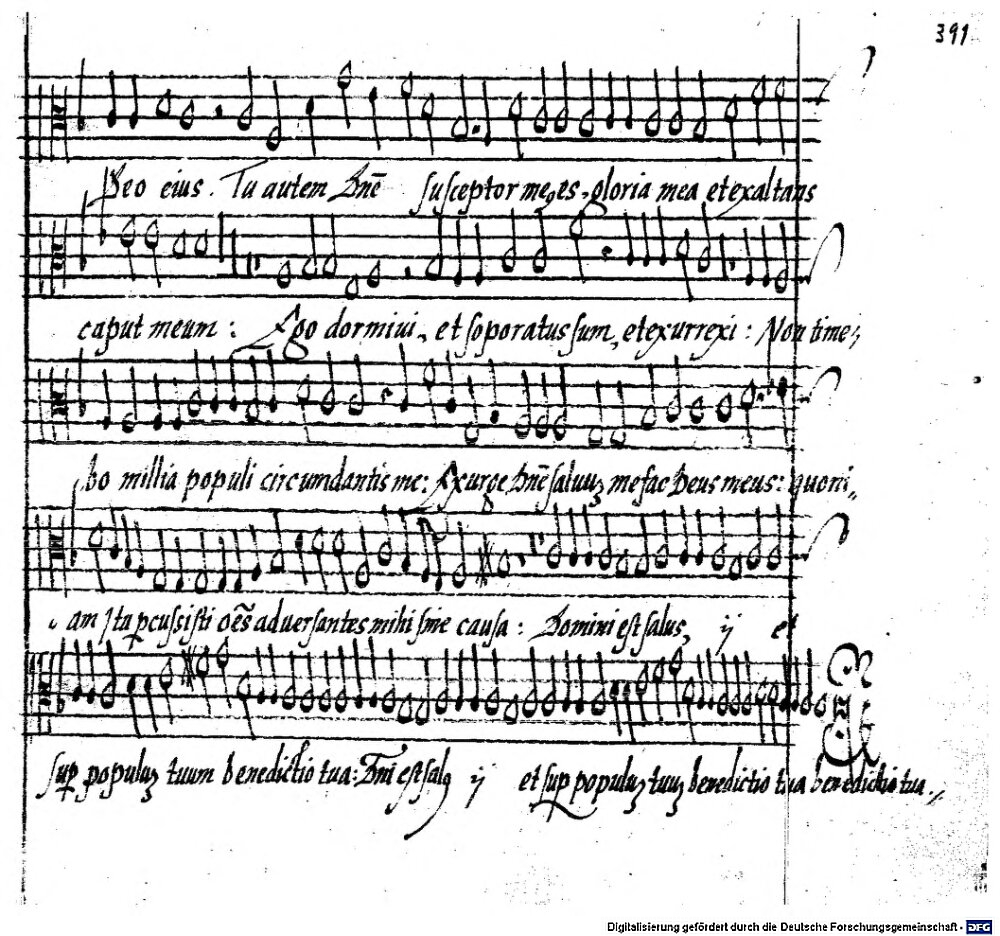 391
Deo eius. Tu autem Dnē susceptor meꝰ es, gloria mea et exaltans
caput meum: Ego dormiui, et soporatus sum, et exurrexi: Non time,,
bo millia populi circumdantis me: Exurge Dnē saluuꝫ me fac Deus meus: quoni,,
am tu ꝑcussisti oēs aduersantes mihi sine causa: Domini est salus, ij et
suꝑ populuꝫ tuum benedictio tua: Dni est salꝰ ij et suꝑ populuꝫ tuuꝫ benedictio tua benedictio tua.
Digitalisierung gefördert durch die Deutsche Forschungsgemeinschaft - DFG